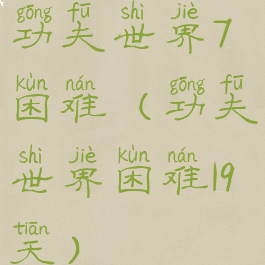 gōng fū shì jiè
功夫世界7
kùn nán gōng fū
困难（功夫
shì jiè kùn nán
世界困难19
tiān
天）